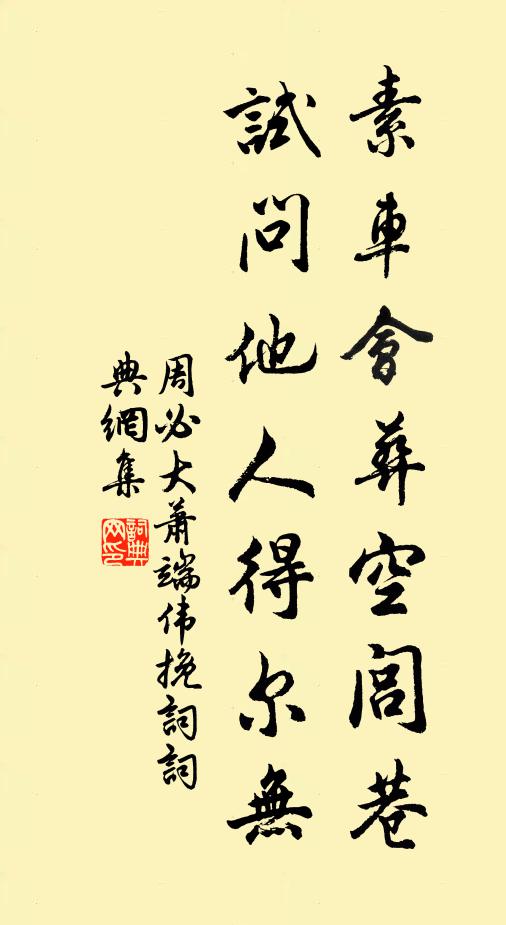 素車會葬空閭巷
試問他人得尔無
周必大蕭端伟挽詞詞
典網集
詞典网印